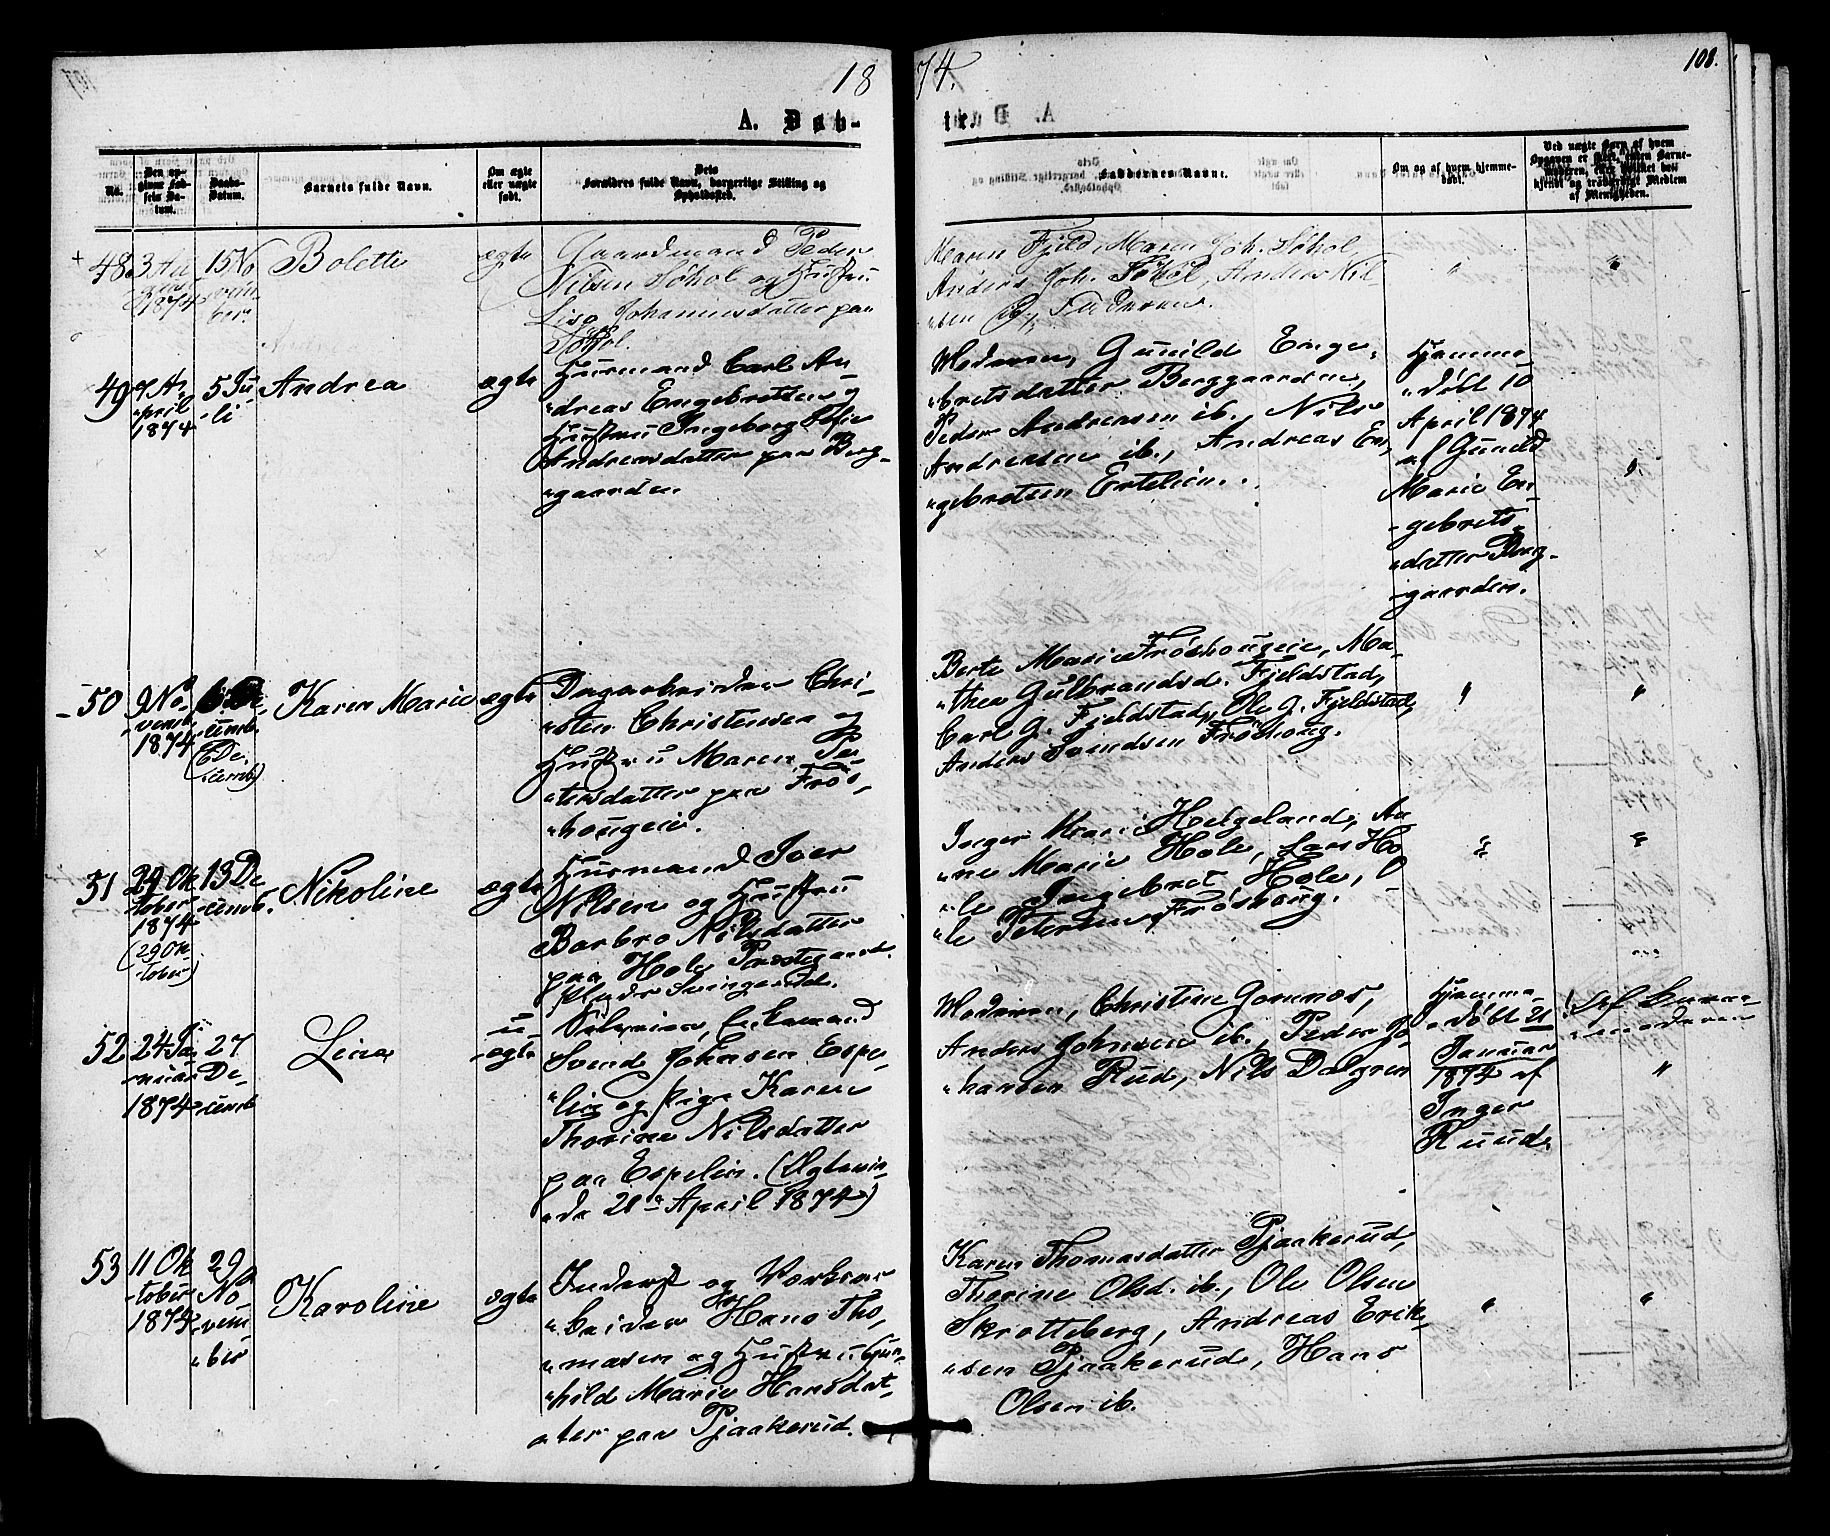 18
74.
108.
A. Døb-
te.
No.
Den op-
givne Fød-
sels Da-
tum.
Daabs-
Datum.
Barnets fulde Navn.
Om ægte
eller uægte
født.
Dets
Forældres fulde Navn, borgerlige Stilling og
Opholdssted.
Faddernes Navne.
Om og af hvem hjemme-
døbt.
Ved uægte Børn af hvem
Opgaven er skeet, uden Barne-
Moderen,
kjendt og troværdigt Medlem
af Menigheden.
48.
3 Au
gust
1874
15 No
vem-
ber.
Bolette
ægte
Gaardmand Peder
Nilsen Søhol og Hustru
Lise Johannesdatter paa
Søhol.
Maren Fjeld, Maren Joh. Søhol
Anders Joh. Søhol, Anders Nil-
"sen
"
"
49
7 A-
"pril
1874
5 Ju-
"li
Andrea
ægte
Husmand Carl An-
"dreas Engebretsen og
Hustru Ingeborg Sofie
Andreasdatter paa Berg-
"gaarden.
Moderen, Gunild Enge-
"bretsdatter Berggaarden,
Peder Andreasen ib., Nils
Andreasen ib., Andreas En-
"gebretsen Ertelien.
Hjemme-
"døbt 10
April 1874
af Gunild
Marie En-
-gebrets-
"datter Berg-
-gaarden.
"
50
9 No-
-vemb.
1874
6 De-
-cemb.
(6 De-
cemb)
Karen Marie
ægte
Dagarbeider Chri-
"sten Christensen og
Hustru Maren Pe-
"tersdatter paa Frøs-
"hougeie.
Berte Marie Frøshougeie, Ma-
"thea Gulbrandsd. Fjeldstad,
Carl G. Fjeldstad, Ole G. Fjeldstad,
Anders Svendsen Frøshoug.
"
"
51
29 Ok
-tober
1874
(29 Ok-
-tober)
13 De
-cemb.
Nikoline
ægte
Husmand Iver
Nilsen og Hustru
Barbro Nilsdatter
paa Hole Præstegaard
Inger Marie Helgeland, An-
"ne Marie Hole, Lars Ho
"le, Ingebret Hole, O
"le Petersen Frøshoug.
"
"
52
24 Ja-
-nuar
1874
27
De-
-cemb
Lina
u-
-ægte
Selveier, Enkemand
Svend Johnsen Espe-
"lien og Pige Karen
Thorine Nilsdatter
paa Espelien. (Ægtevi-
"de 21de April 1874)
Moderen, Christine Gomnæs,
Anders Johnsen ib., Peder Jo-
"hansen Rud, Nils Dalgren
Hjemme-
"døbt 21
Januar
1874 af
Inger
Ruud.
Af Barne-
"moderen
"
53
11 Ok
-tober
1874
29
No
-vem-
"ber
Karoline
ægte
Inderst og Værksar-
"beider Hans Tho-
"masen og Hustru Gun-
"hild Marie Hansdat-
"ter paa Pjaakerud.
Karen Thomasdatter Pjaakerud,
Thorine Olsd. ib., Ole Olsen
Skrotteberg, Andreas Erik-
"sen Pjaakerud, Hans
Olsen ib.
"
"